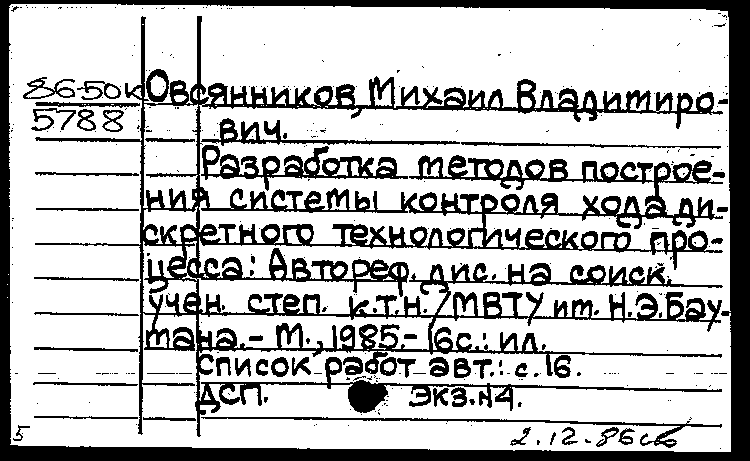 86-50к Овсянников, Михаил Владимиро-
5788 вич.
Разработка методов построе-
ния системы контроля хода ди-
скретного технологического про-
цесса: Автореф. дис. на соиск.
учен. степ. к.т.н. / МВТУ им. Н.Э.Бау-
мана. - М., 1985. - 16с.: ил.
Список работ авт.: с.16.
ДСП. Экз.№4.
5 2.12.86